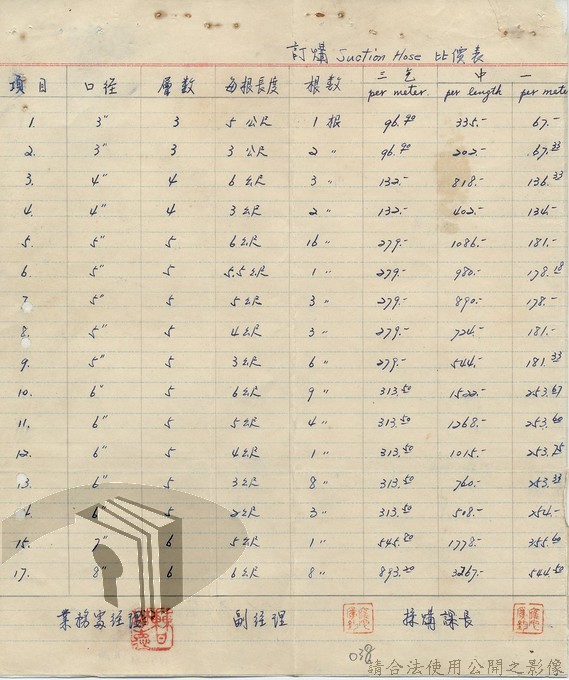 訂購 Suction Hose 比價表
三乞 中一
項目 口径 層数 每根長度 根数 per meter. per length per mete
1. 3" 3 5 公尺 1 根 96.90 335.- 67.-
2. 3" 3 3 公尺 2 " 96.90 202.- 67.33
3. 4" 4 6 公尺 3 " 132.- 818.- 136.33
4. 4" 4 3 公尺 2 " 132.- 402.- 134.-
5. 5" 5 6 公尺 16 " 279.- 1086.- 181.-
6. 5" 5 5.5 公尺 1 " 279.- 980.- 178.18
7. 5" 5 5 公尺 3 " 279.- 890.- 178.-
8. 5" 5 4 公尺 3 " 279.- 724.- 181.-
9. 5" 5 3 公尺 6 " 279.- 544.- 181.33
10. 6" 5 6 公尺 9 " 313.50 1522.- 253.67
11. 6" 5 5 公尺 4 " 313.50 1268.- 253.60
12. 6" 5 4 公尺 1 " 313.50 1015.- 253.75
13. 6" 5 3 公尺 8 " 313.50 760.- 253.33
6" 5 2 公尺 3 " 313.50 508.- 254.-
15. 7" 6 5 公尺 1 " 545.80 1778.- 355.60
17. 8" 6 6 公尺 8 " 893.20 3267.- 544.50
業務處經理 副經理 採購課長
038
請合法使用公開之影像